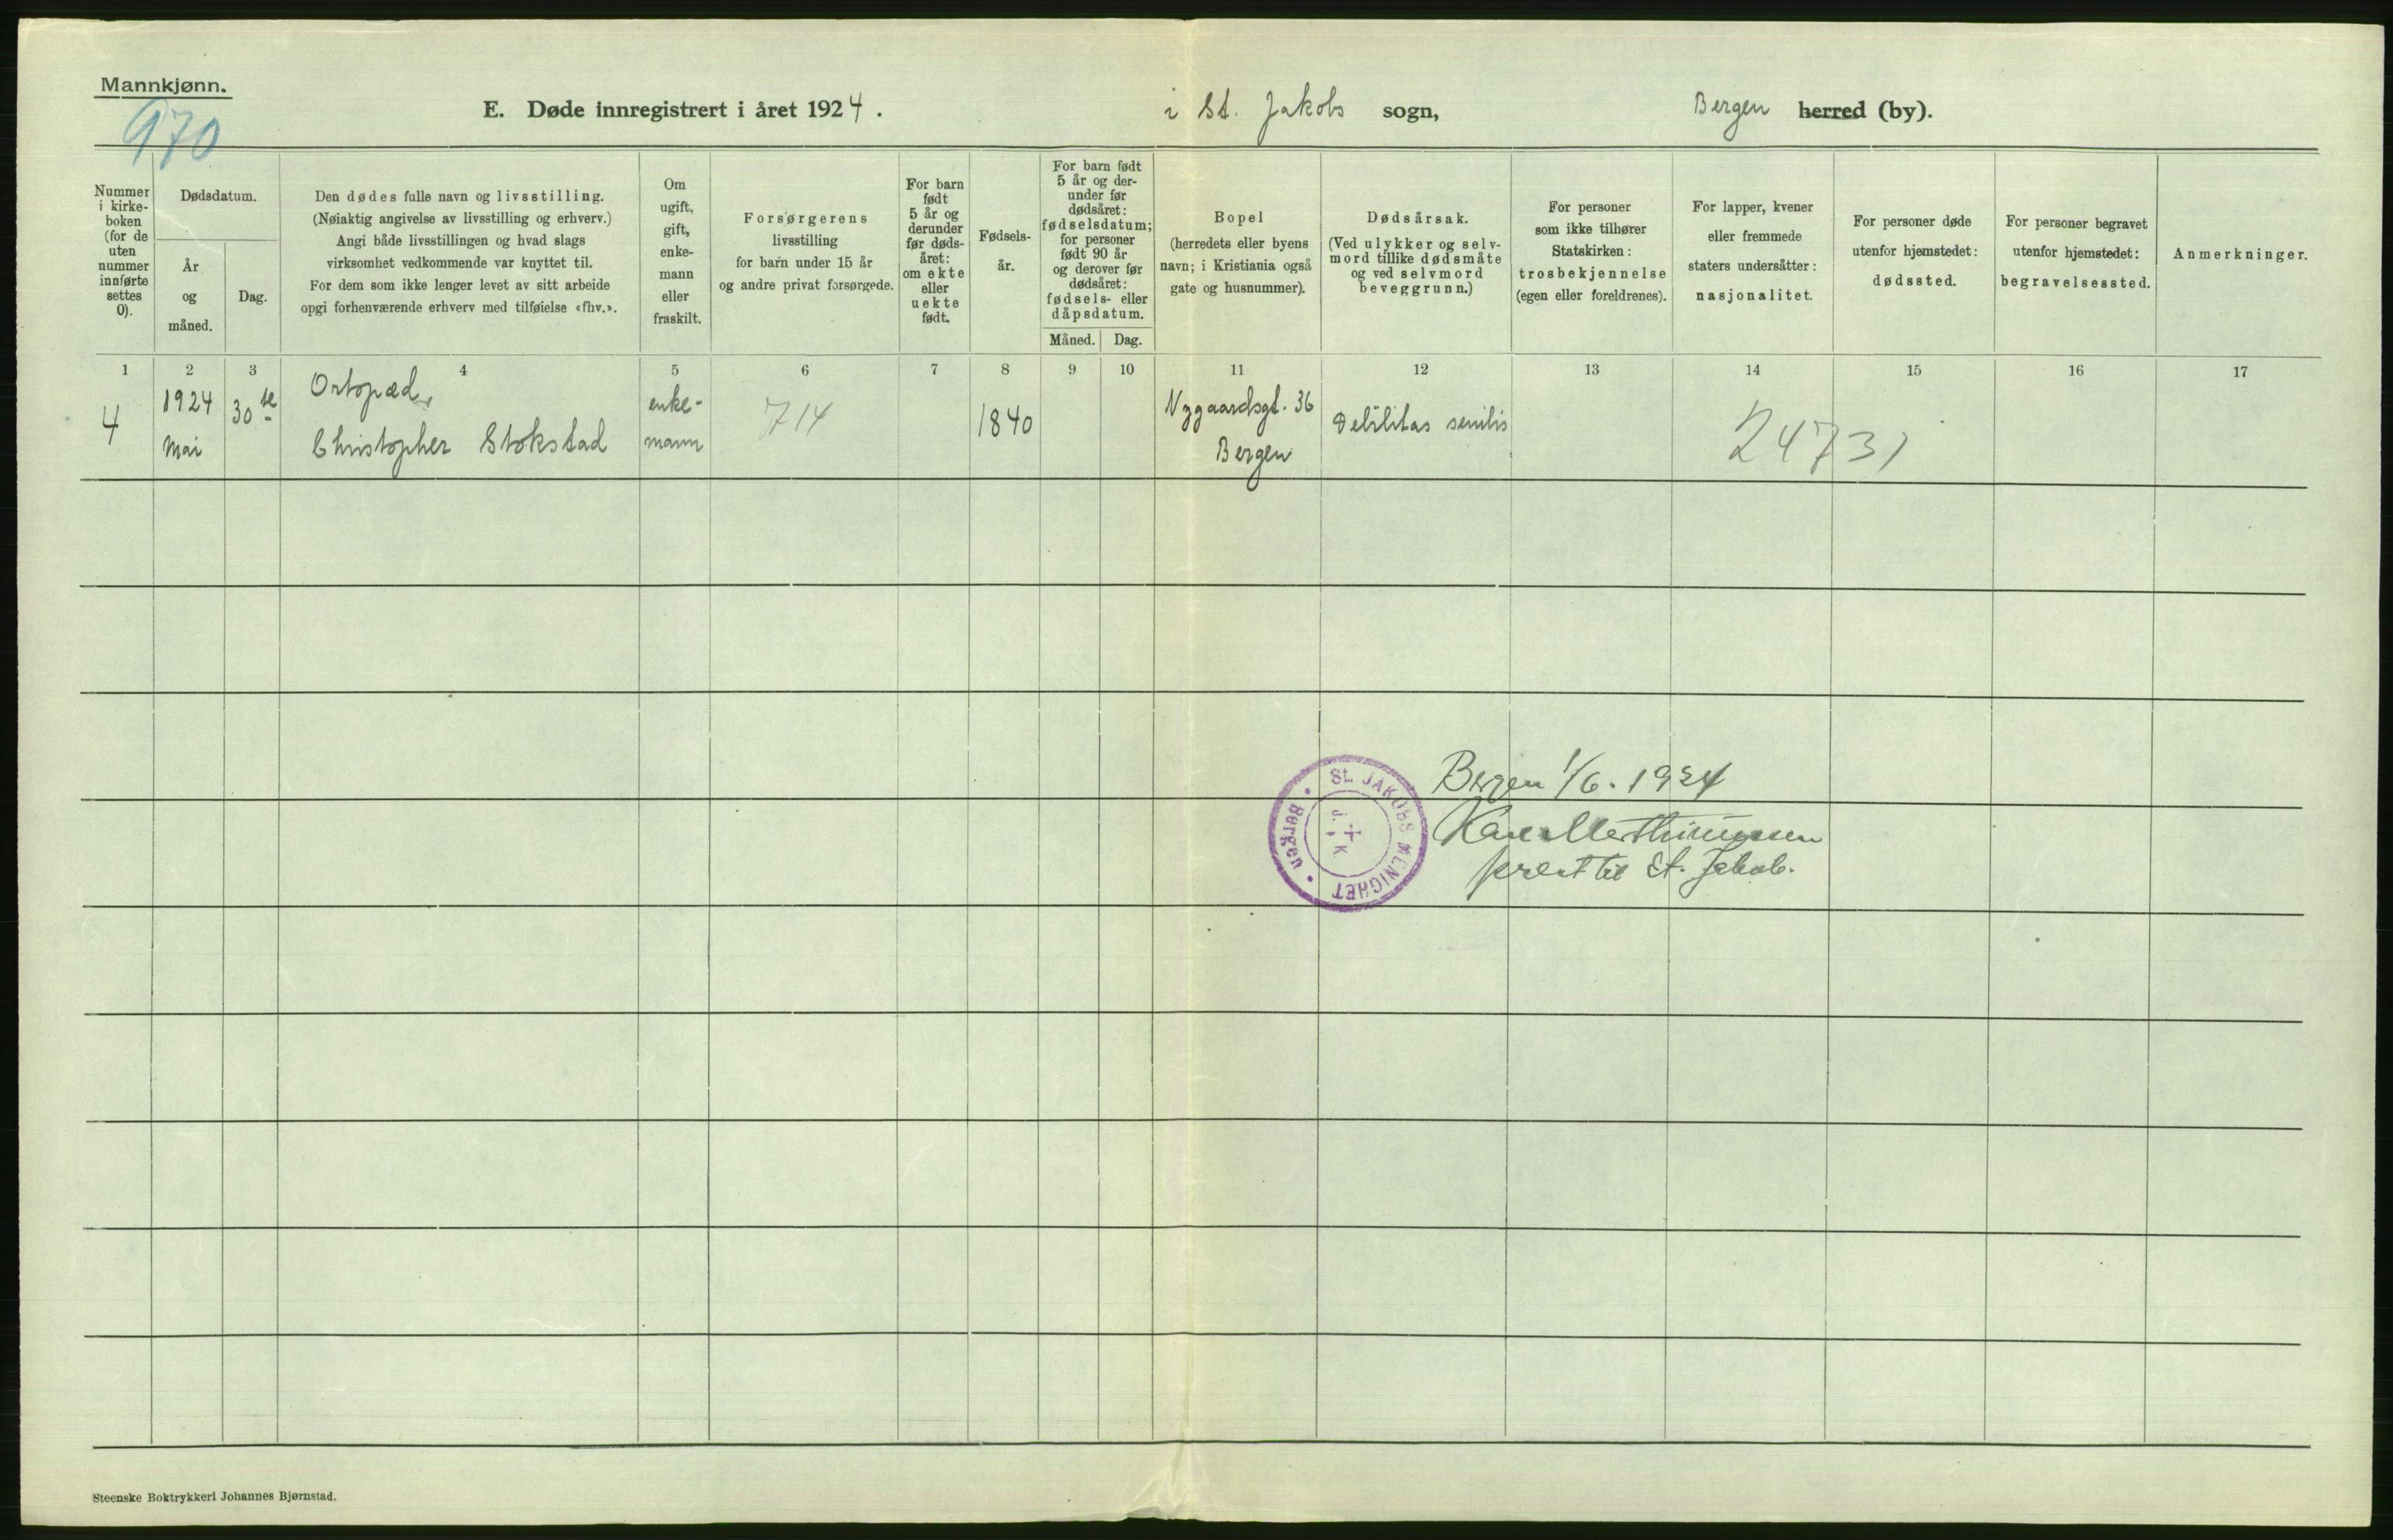 Mannkjønn.
970
E. Døde innregistrert i året 1924.
i St. Jakobs sogn,
Bergen herred (by).
Nummer
i kirke-
boken
(for de
uten
nummer
innførte
settes
0).
Dødsdatum.
År
og
måned.
Dag.
Den dødes fulle navn og livsstilling.
(Nøiaktig angivelse av livsstilling og erhverv.)
Angi både livsstillingen og hvad slags
virksomhet vedkommende var knyttet til.
For dem som ikke lenger levet av sitt arbeide
opgi forhenværende erhverv med tilføielse «fhv.».
Om
ugift,
gift,
enke-
mann
eller
fraskilt.
Forsørgerens
livsstilling
for barn under 15 år
og andre privat forsørgede.
For barn
født
5 år og
derunder
før døds-
året:
om ekte
eller
uekte
født.
Fødsels-
år.
For barn født
5 år og der-
under før
dødsåret:
fødselsdatum;
for personer
født 90 år
og derover før
dødsåret:
fødsels- eller
dåpsdatum.
Måned.
Dag.
Bopel
(herredets eller byens
navn; i Kristiania også
gate og husnummer).
Dødsårsak.
(Ved ulykker og selv-
mord tillike dødsmåte
og ved selvmord
beveggrunn.)
For personer
som ikke tilhører
Statskirken:
trosbekjennelse
(egen eller foreldrenes).
For lapper, kvener
eller fremmede
staters undersåtter:
nasjonalitet.
For personer døde
utenfor hjemstedet:
dødssted.
For personer begravet
utenfor hjemstedet:
begravelsessted.
Anmerkninger.
1 2 3 4 5 6 7 8 9 10 11 12 13 14 15 16 17
4
1924
Mai
30te
Ortopæd,
Christopher Stokstad
enke-
mann
714
1840
Nygaardsgt. 36
Bergen
Debilitas senilis
24731
St. JAKOBS MENIGHET
• Bergen •
J. K
Bergen 1/6. 1924
prest til St. Jakob.
Steenske Boktrykkeri Johannes Bjørnstad.